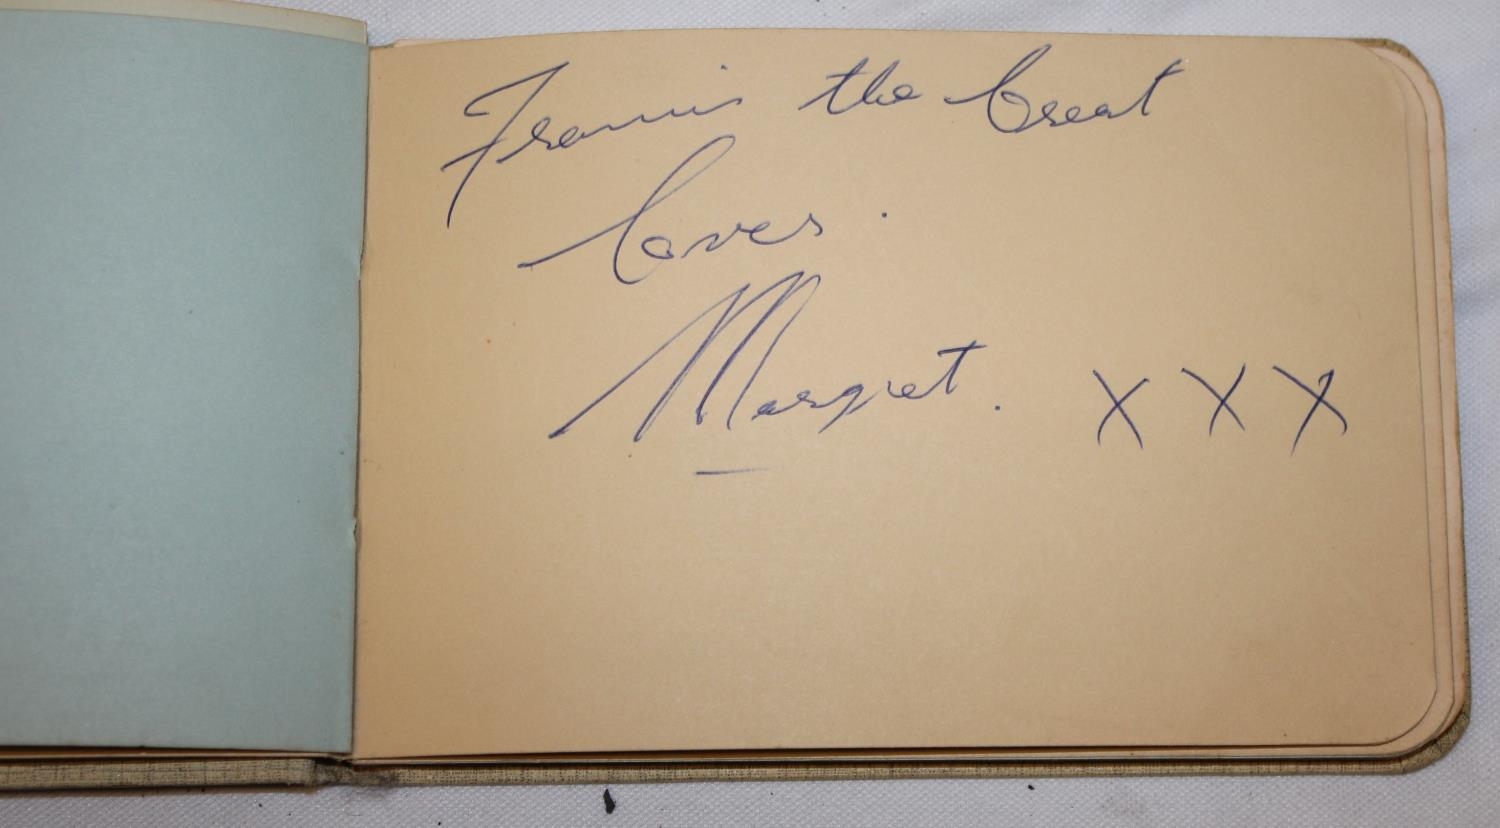 Francis the Great
Loves.
Margret. X X X